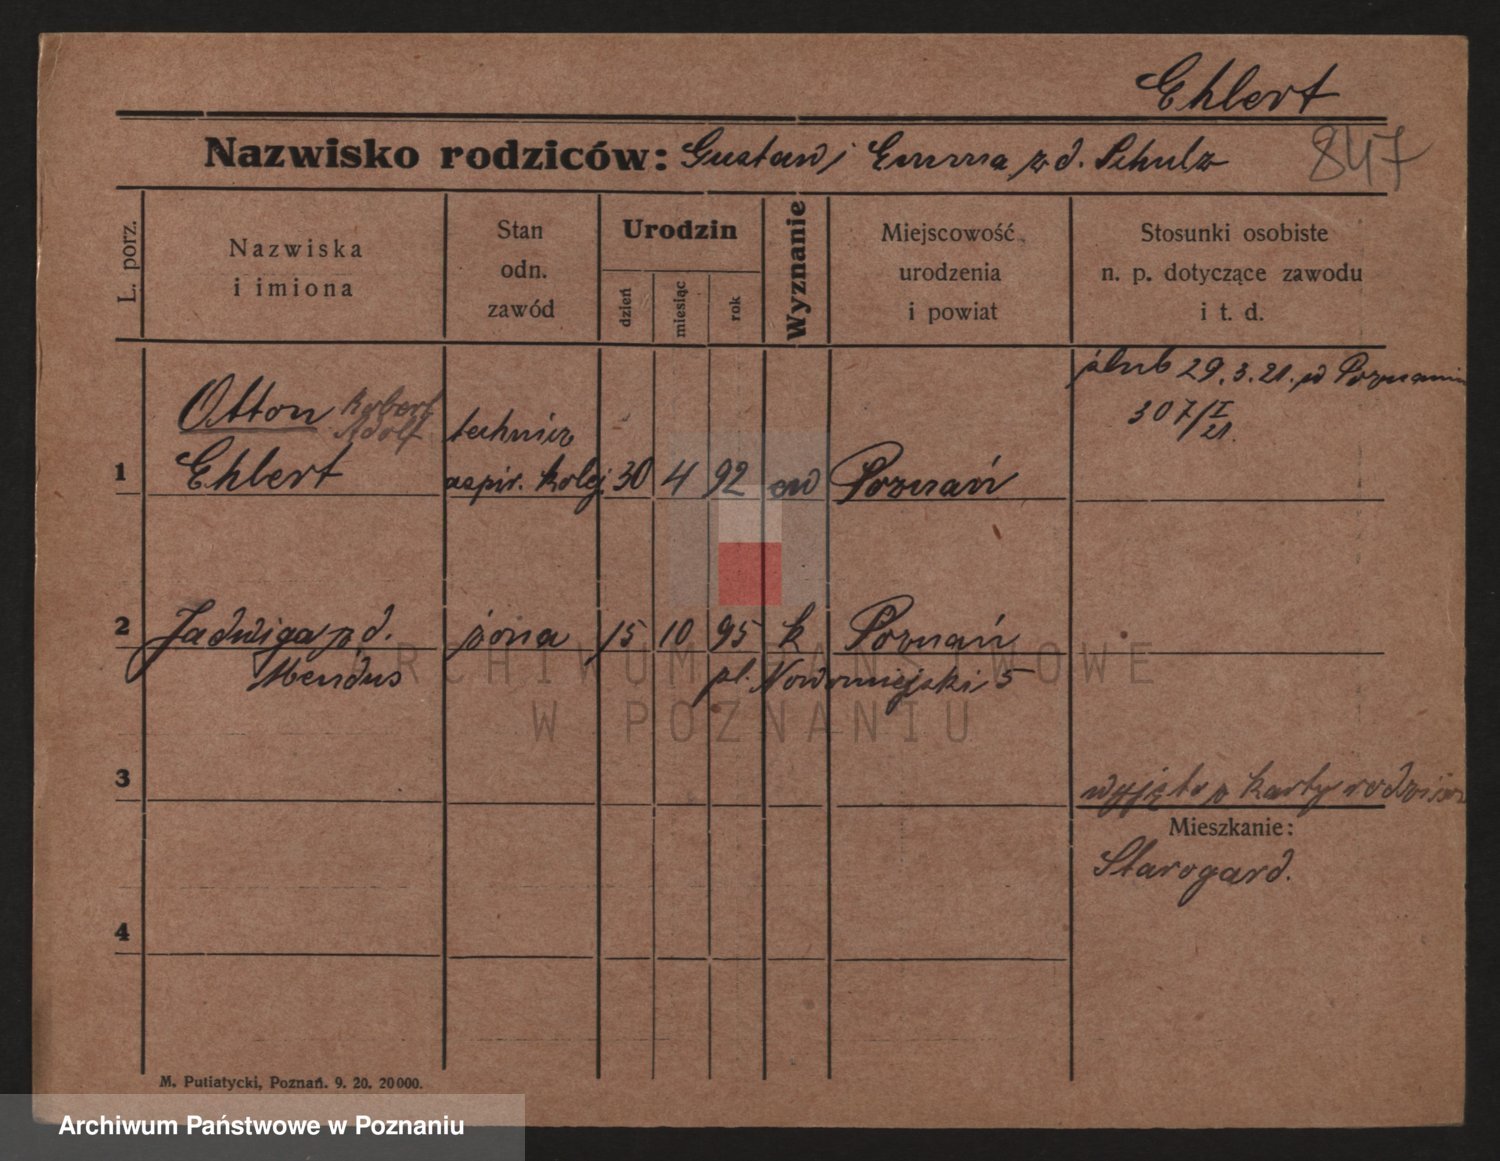 Ehlert
Nazwisko rodziców: Gustaw i Emma z d. Schulz
847
L. porz.
Nazwiska
i imiona
Stan
odn.
zawód
Urodzin
dzień
miesiąc
rok
Wyznanie
Miejscowość
urodzenia
i powiat
Stosunki osobiste
n. p. dotyczące zawodu
i t. d.
ślub 29.3.21. w Poznaniu
307/I
21.
Otton Robert
Adolf
technicz
1 Ehlert aspir. kolej 30 4 92 ew Poznań
2 Jadwiga z d. żona 15 10 95 k Poznań
Mendus pl. Nowomiejski 5
ARCHIWUM PAŃSTWOWE
W POZNANIU
3
wyjęto z karty rodzicow
Mieszkanie:
Starogard.
4
M. Putiatycki, Poznań. 9. 20. 20000.
Archiwum Państwowe w Poznaniu